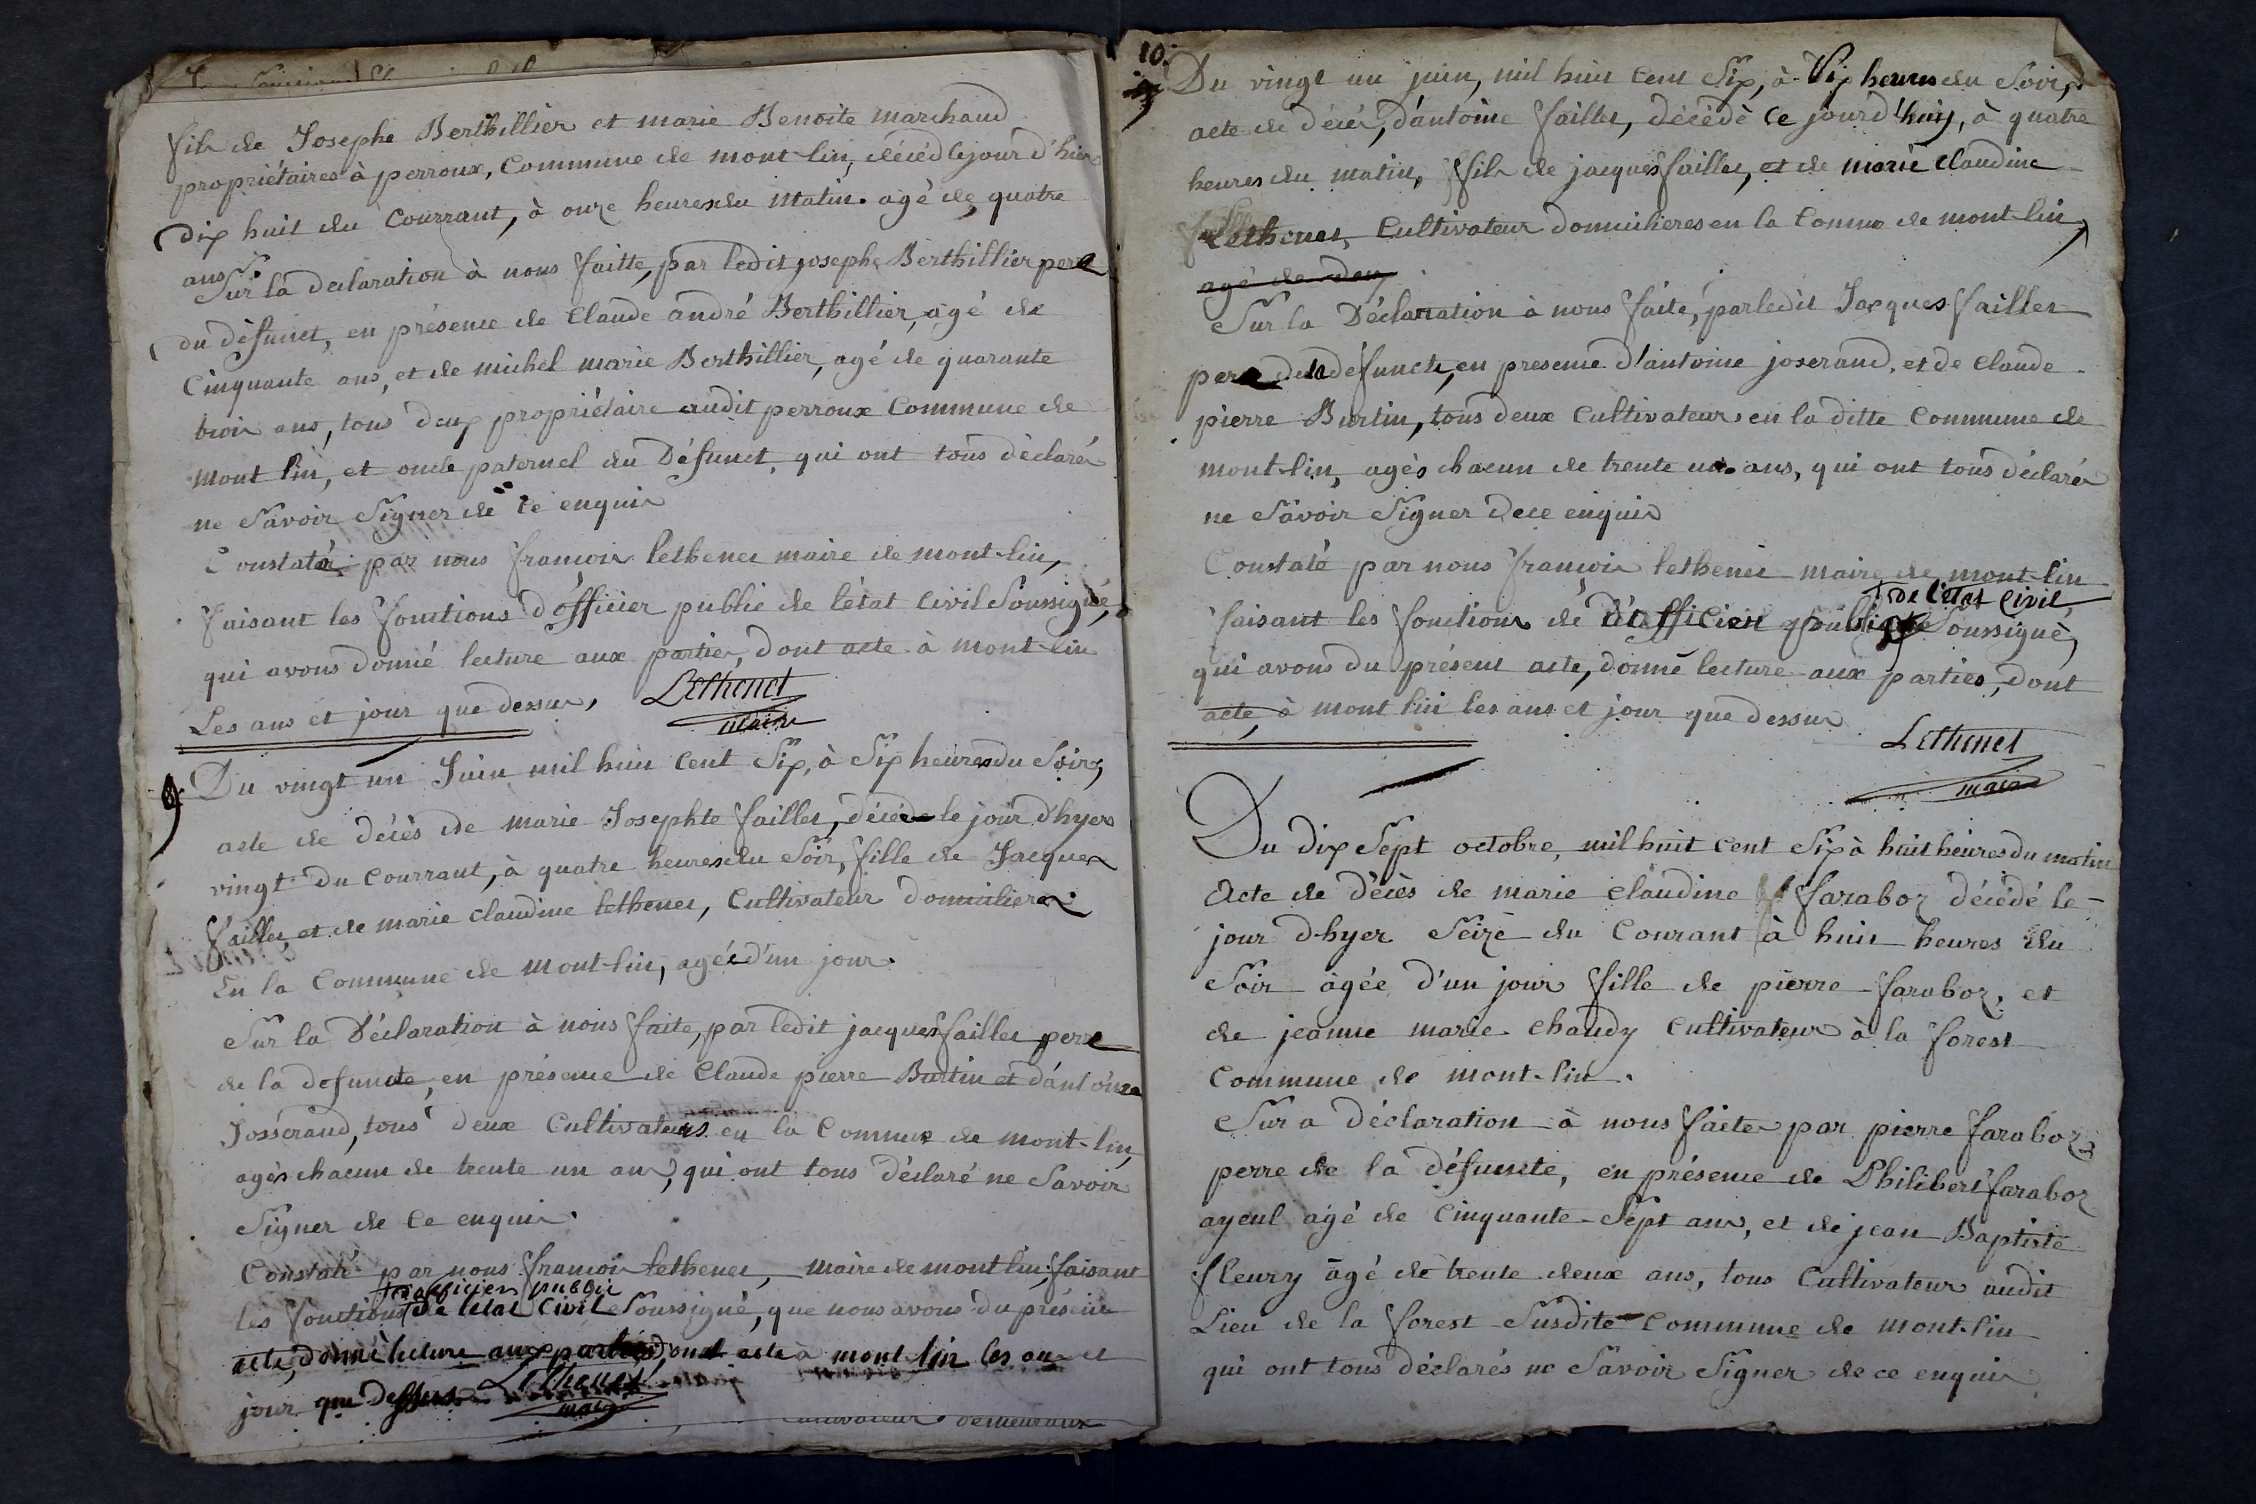 fils de Josephe Berthillier et marie Benoite marchand
propriétaires à perroux, Commune de mont-lin, décéd le jour d'hier
dix huit du Courrant, à onze heures du matin. agé de quatre
ans
Sur la declaration à nous faitte, par ledit josephe Berthillier pere
du défunct, en présence de Claude andré Berthillier, agé de
Cinquante ans, et de michel marie Berthillier, agé de quarante
trois ans, tous deux propriétaire audit perroux Commune de
mont lin, et oncle paternel du Défunct, qui ont tous déclarés
ne Savoir Signer de ce enquis
Constaté par nous francois lethenet maire de mont-lin,
faisant les fonctions d'officier public de l'état Civil Soussigné,
qui avons donné lecture aux parties, dont acte à mont-lin
Les ans et jour que dessus, Lethenet
maire
9. Du vingt un Juin mil huit Cent Six, à Six heures du Soir,
acte de décès de marie Josephte failles, décédé le jour d'hyer
vingt du Courrant, à quatre heures du Soir, fille de Jacques
failles, et de marie Claudine lethenet, Cultivateur domicilieres
En la Commune de mont-lin, agée d'un jour.
Sur la Déclaration à nous faite, par ledit jacques failles perre
de la defuncte, en présence de Claude pierre Burtin et d'antoine
Josserand, tous deux Cultivateurs en la Commune de mont-lin,
agés chacun de trente un ans, qui ont tous déclaré ne Savoir
Signer de Ce enquis.
Constaté par nous francois lethenet, maire de mont-lin, faisant
officier public
les fonctions de letat Civil Soussigné, que nous avons du présent
acte, donné lecture aux parties, dont acte à mont-lin les ans et
jour que dessus Lethenet
maire
Cultivateur demeurant
10.
Du vingt un juin, mil huit Cent Six, à Six heures du Soir,
acte de décés, d'antoine failles, décédé ce jourd'huy, à quatre
heures du matin, fils de jacques failles, et de marie Claudine
Lethenet, Cultivateur domicilieres en la Comme de mont-lin,
agé de deux
Sur la Déclaration à nous faite, par ledit Jacques failles
pere du défunct, en presence d'antoine joserand, et de Claude
pierre Burtin, tous deux Cultivateurs en la ditte Commune de
mont-lin, agés chacun de trente un ans, qui ont tous déclarés
ne Savoir Signer de ce enquis
Constaté par nous francois lethenet maire de mont-lin
de l'etat Civil
faisant les fonctions de officier public Soussigné,
qui avons du présent acte, donné lecture aux parties, dont
acte, à mont lin les ans et jour que dessus
Lethenet
maire
Du dix Sept octobre, mil huit Cent Six à huit heures du matin
Acte de décès de marie Claudine faraboz décédé le
jour d-hyer Seize du Courant à huit heures du
Soir âgée d'un jour fille de pierre faraboz, et
de jeanne marie chaudy Cultivateur à la forest
Commune de mont-lin.
Sur a déclaration à nous faite par pierre faraboz
perre de la défuncte, en présence de Philibert faraboz
ayeul agé de Cinquante-Sept ans, et de jean Baptiste
fleury âgé de trente deux ans, tous Cultivateur audit
Lieu de la forest Susdite Commune de mont-lin
qui ont tous déclarés ne Savoir Signer de ce enquis